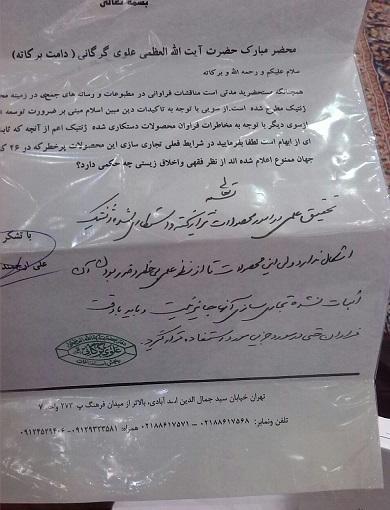 بسمه تعالی
محضر مبارک حضرت آیت الله العظمی علوی گرگانی ( دامت برکاته)
سلام علیکم و رحمه الله و برکاته
همچنانکه مستحضرید مدتی است مناقشات فراوانی در مطبوعات و رسانه های جمعی در زمینه
ژنتیک مطرح شده است.از سویی با توجه به تاکیدات دین مبین اسلام مبنی بر ضرورت توسعه
ازسوی دیگر با توجه به مخاطرات فراوان محصولات دستکاری شده ژنتیک اعم از آنچه که
ای از ابهام است لطفا بفرمایید در شرایط فعلی تجاری سازی این محصولات پرخطرکه در ۲۶
جهان ممنوع اعلام شده اند از نظر فقهی واخلاق زیستی چه حکمی دارد؟
با تشکر
علی
تحقیق علمی در امور محصولات تراریخته و دستکاری شده ژنتیک
اشکال ندارد ولی این محصولات تا از نظر علمی بی خطر و ضرر بودنشان
اثبات نشده تجاری سازی آنها جائز نیست و باید با دقت
فراوان حتی در مورد استفاده قرار گیرد
علوی گرگانی
تهران خیابان سید جمال الدین اسد آبادی، بالاتر از میدان فرهنگ پ ۲۷۳ واحد ۷
تلفن ونمابر: ۰۲۱۸۸۶۱۷۵۶۸ – ۰۲۱۸۸۶۱۷۵۷۱ همراه: ۰۹۱۲۹۳۳۳۵۸۱-